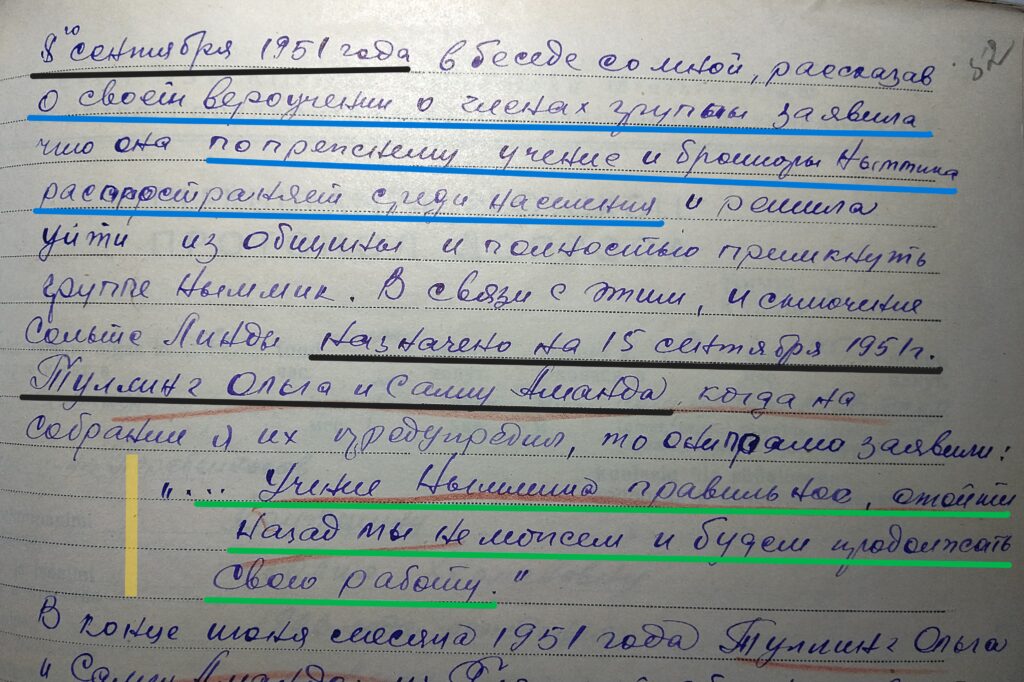 32
8го сентября 1951 года в беседе со мной, рассказав
о своем вероучении о членах группы заявила
что она по прежнему учение и брошюры Ныммика
распространяет среди населения и решила
уйти из общины и полностью примкнуть
группе Ныммик. В связи с этим, исключение
Сольте Линды назначено на 15 сентября 1951г.
Туллинг Ольга и Саллу Аманда, когда на
собрании я их предупредил, то они прямо заявили:
„... Учение Ныммика правильное, отойти
назад мы не можем и будем продолжать
свою работу."
В конце июня месяца 1951 года Туллинг Ольга
и Саллу Аманда